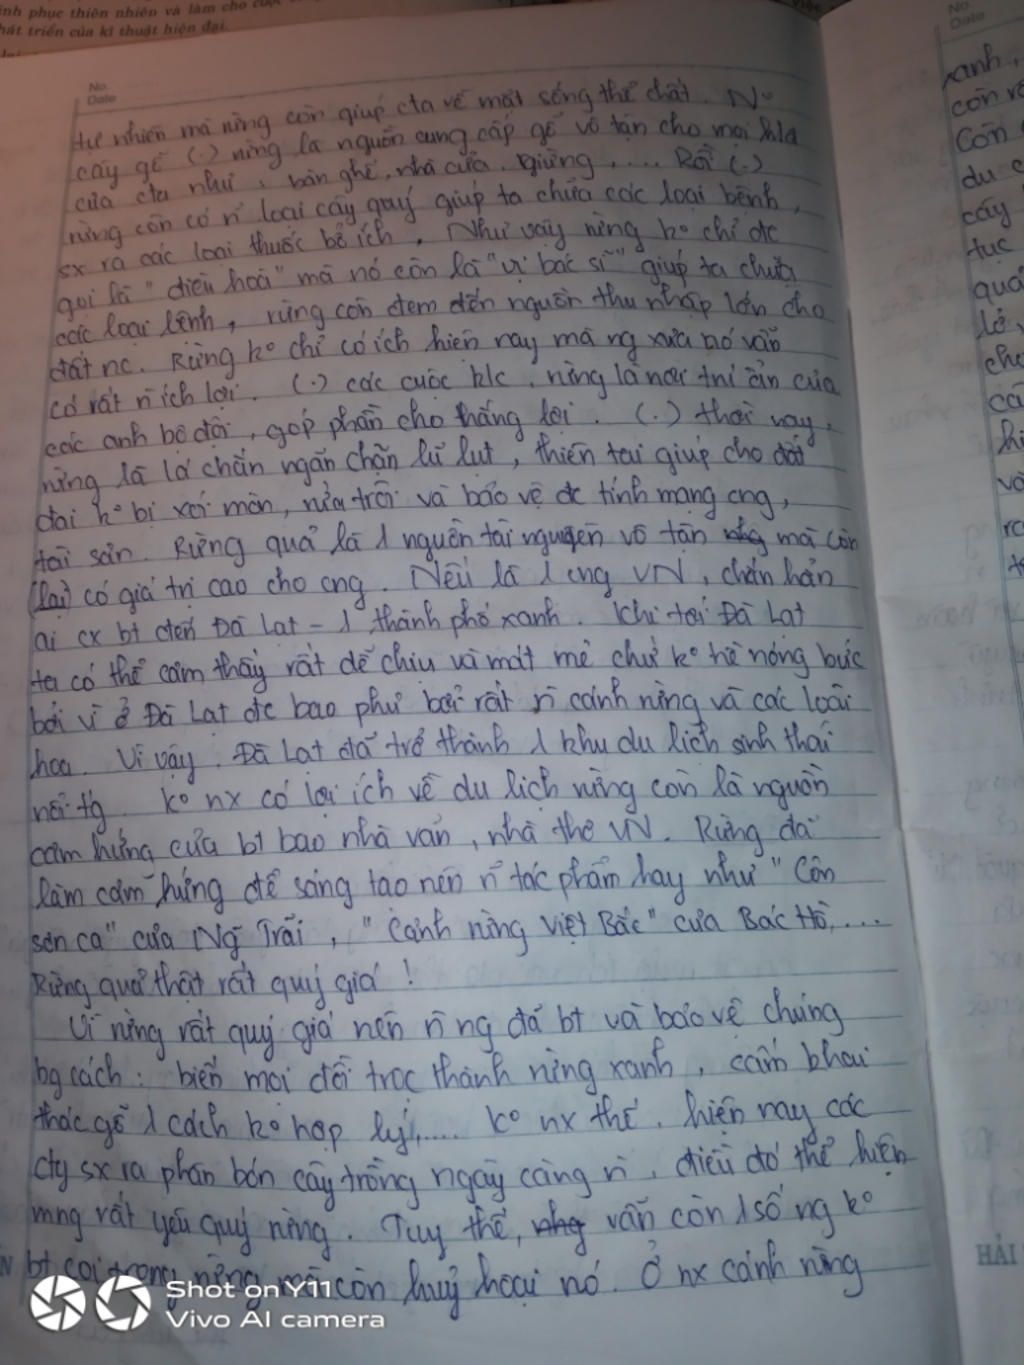 ính phục thiên nhiên và làm cho cuộc
hát triển của kĩ thuật hiện đại.
No
Date
tự nhiên mà rừng còn giúp cta về mặt sống thể chất. No
cây gỗ (.) rừng là nguồn cung cấp gỗ vô tận cho mọi
của cta như: bàn ghế, nhà cửa, giường, .... Rồi (.)
rừng còn có n̄ loại cây quý giúp ta chữa các loại bệnh,
sx ra các loại thuốc bổ ích. Như vậy rừng ko chỉ đc
gọi là "điều hoà" mà nó còn là "vị bác sĩ" giúp ta chữa
các loại bệnh, rừng còn đem đến nguồn thu nhập lớn cho
đất nc. Rừng ko chỉ có ích hiện nay mà ng xưa nó vẫn
có rất n̄ ích lợi. (.) các cuộc k/c, rừng là nơi trú ẩn của
các anh bộ đội, góp phần cho thắng lợi. (.) thời nay,
rừng là lá chắn ngăn chặn lũ lụt, thiên tai giúp cho đất
đai ko bị xói mòn, rửa trôi và bảo vệ đc tính mạng cng,
tài sản. Rừng quả là 1 nguồn tài nguyên vô tận nhg mà còn
(lại) có giá trị cao cho cng. Nếu là 1 cng VN, chắn hẳn
ai cx bt đến Đà Lạt - 1 thành phố xanh. Khi tới Đà Lạt
ta có thể cảm thấy rất dễ chịu và mát mẻ chứ ko hề nóng bức
bởi vì ở Đà Lạt đc bao phủ bởi rất n̄ cánh rừng và các loài
hoa. Vì vậy, Đà Lạt đã trở thành 1 khu du lịch sinh thái
nổi tg. Ko nx có lợi ích về du lịch rừng còn là nguồn
cảm hứng của bt bao nhà văn, nhà thơ VN. Rừng đã
làm cảm hứng để sáng tạo nên n̄ tác phẩm hay như "Côn
sơn ca" của Ng~ Trãi, "Cảnh rừng Việt Bắc" của Bác Hồ,...
Rừng quả thật rất quý giá!
Vì rừng rất quý giá nên n̄ ng đã bt và bảo vệ chúng
bg cách: biến mọi đồi trọc thành rừng xanh, cấm khai
thác gỗ 1 cách ko hợp lý,.... Ko nx thế, hiện nay các
cty sx ra phân bón cây trồng ngày càng n̄, điều đó thể hiện
mng rất yêu quý rừng. Tuy thế, nhg vẫn còn 1 số ng ko
bt coi trọng rừng mà còn huỷ hoại nó. Ở nx cánh rừng
Shot on Y11
Vivo AI camera
No
Date
xanh,
còn
Còn
du
cây
tục
quá
lở,
HẢI